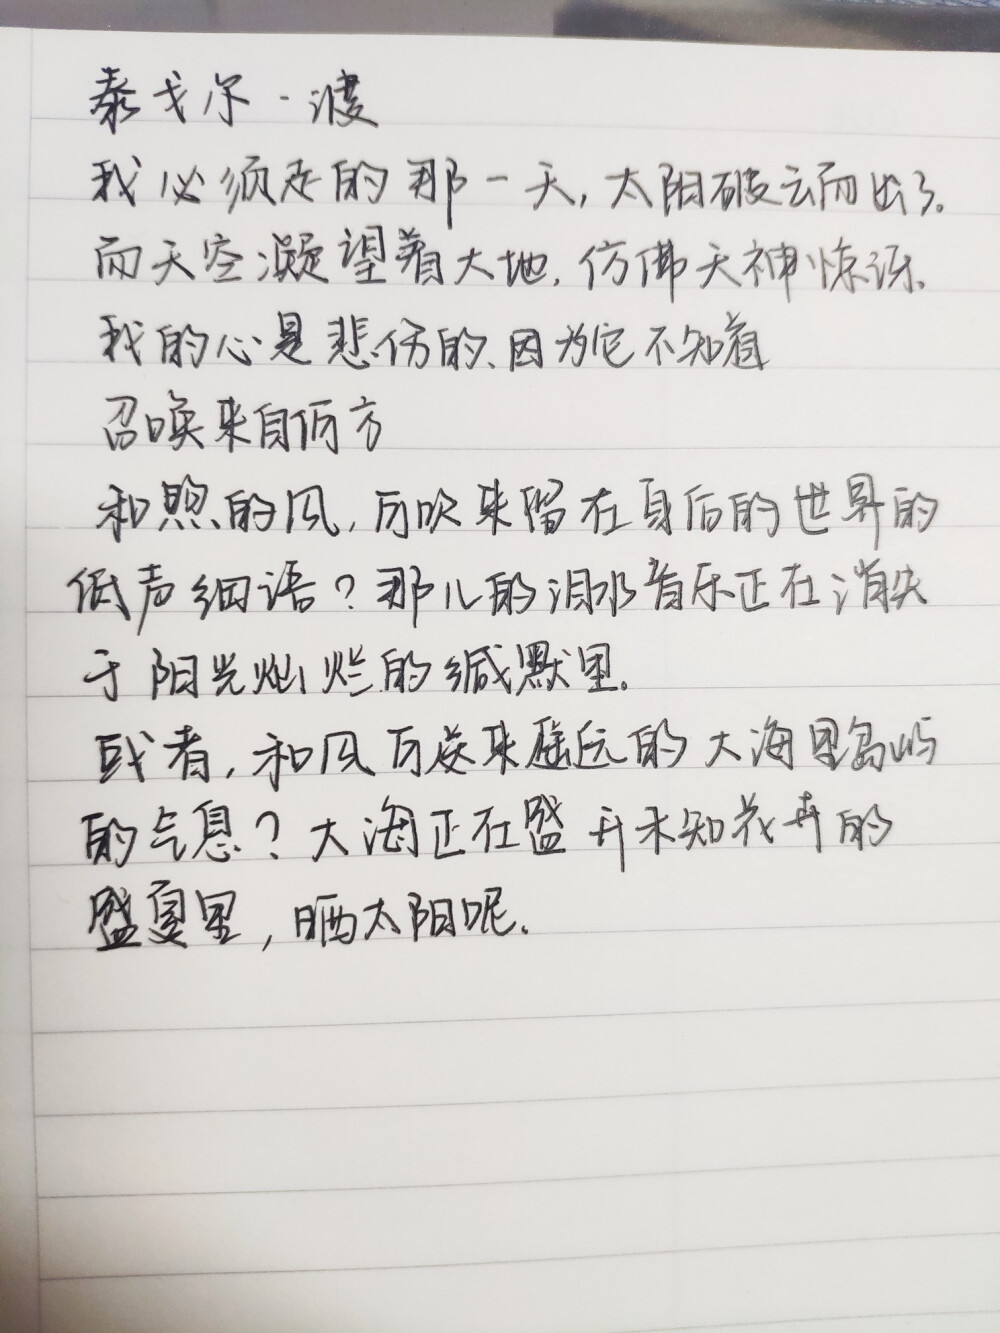 泰戈尔·渡
我必须走的那一天,太阳破云而出了。
而天空凝望着大地,仿佛天神惊讶。
我的心是悲伤的、因为它不知道
召唤来自何方
和煦的风,可吹来留在身后的世界的
低声细语?那儿的泪水音乐正在消失
于阳光灿烂的缄默里。
或者,和风可送来遥远的大海里岛屿
的气息?大海正在盛开未知花卉的
盛夏里,晒太阳呢。